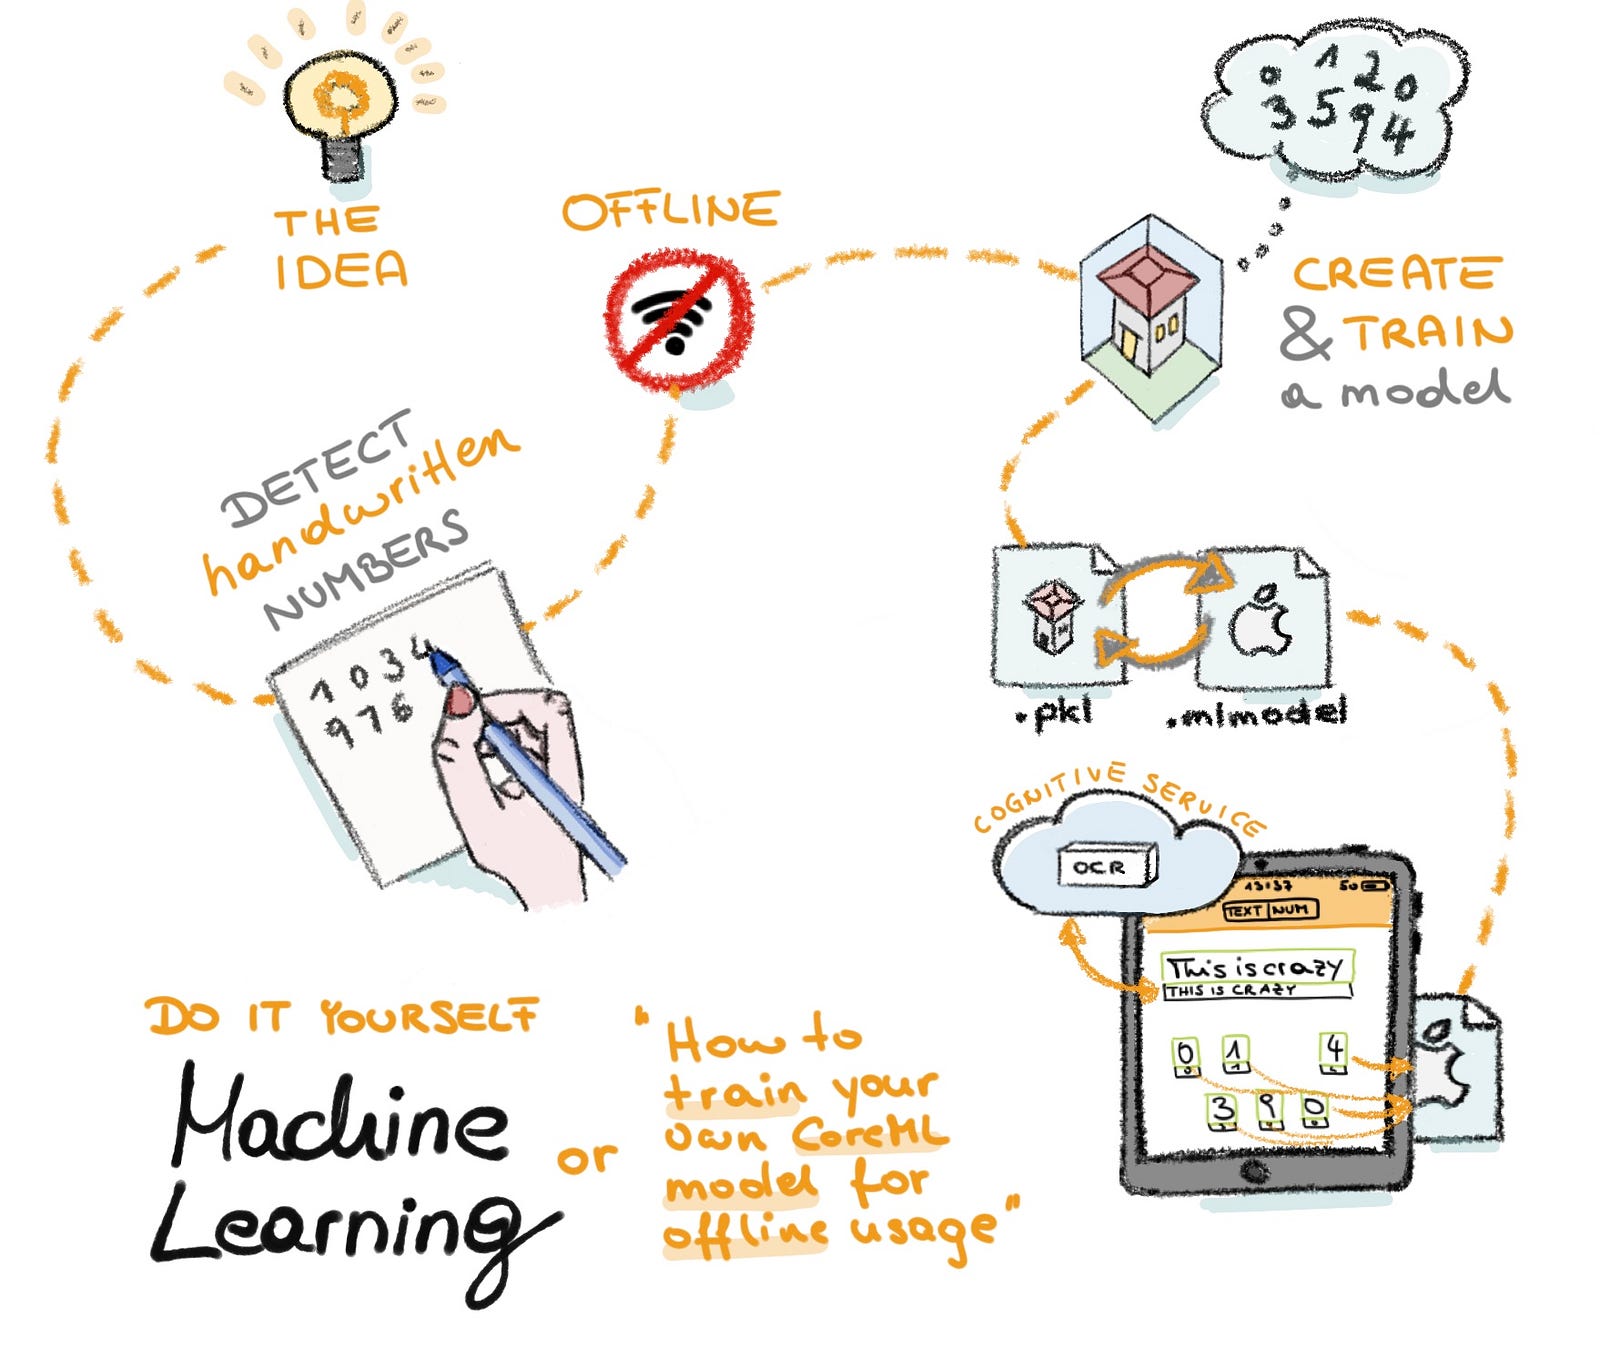 THE
IDEA
OFFLINE
0 1 2 0
3 5 9 4
CREATE
& TRAIN
a model
DETECT
handwritten
NUMBERS
1 0 3 4
9 7 6
.pkl
.mlmodel
COGNITIVE SERVICE
OCR
13:37
50
TEXT NUM
This is crazy
THIS IS CRAZY
0 1 4
3 9 0
DO IT YOURSELF
Machine
Learning
or
"How to
train your
own CoreML
model for
offline usage"